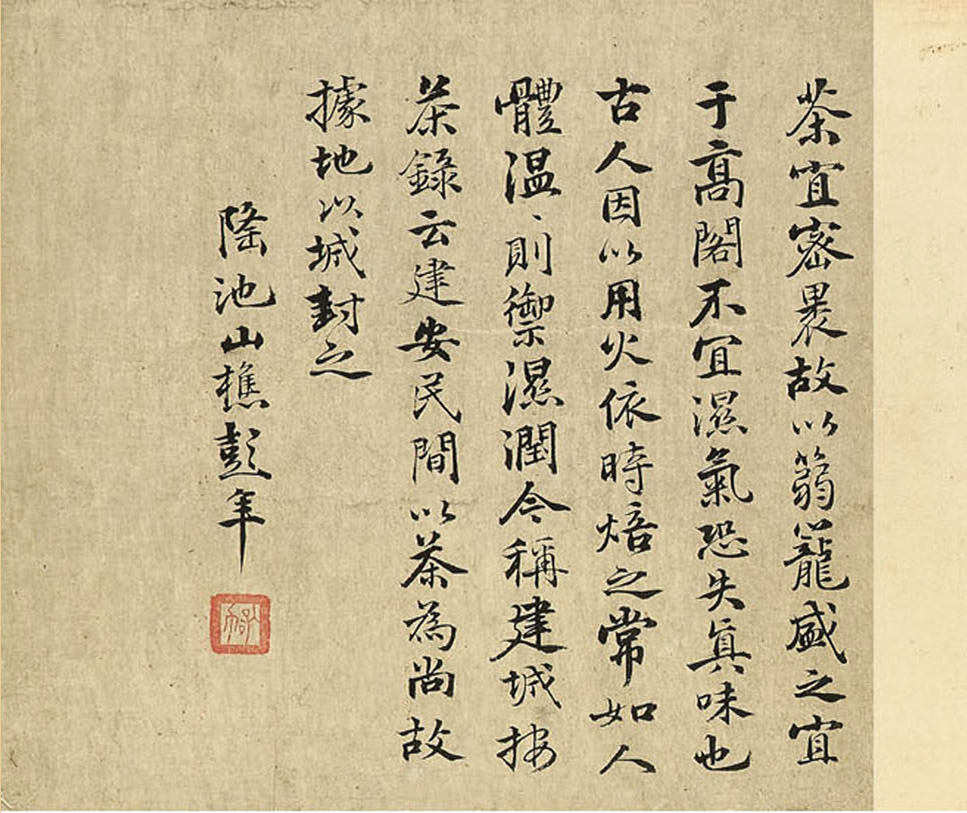 茶宜密裹故以篛籠盛之宜
于高閣不宜濕氣恐失真味也
古人因以用火依時焙之常如人
體温、則禦濕潤今稱建城按
茶錄云建安民間以茶為尚故
據地以城封之
隆池山樵彭年